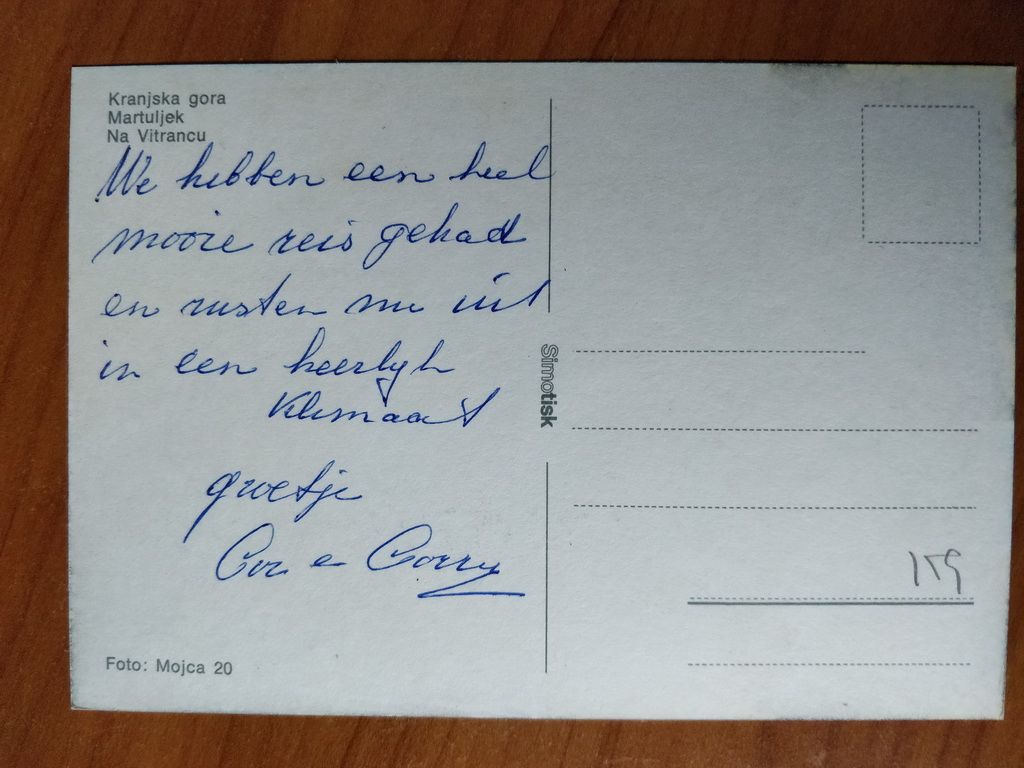 Kranjska gora
Martuljek
Na Vitrancu
We hebben een heel
mooie reis gehad
en rusten nu uit
in een heerlyk
Klimaat
groetje
Cor e Corry
Foto: Mojca 20
Simotisk
159